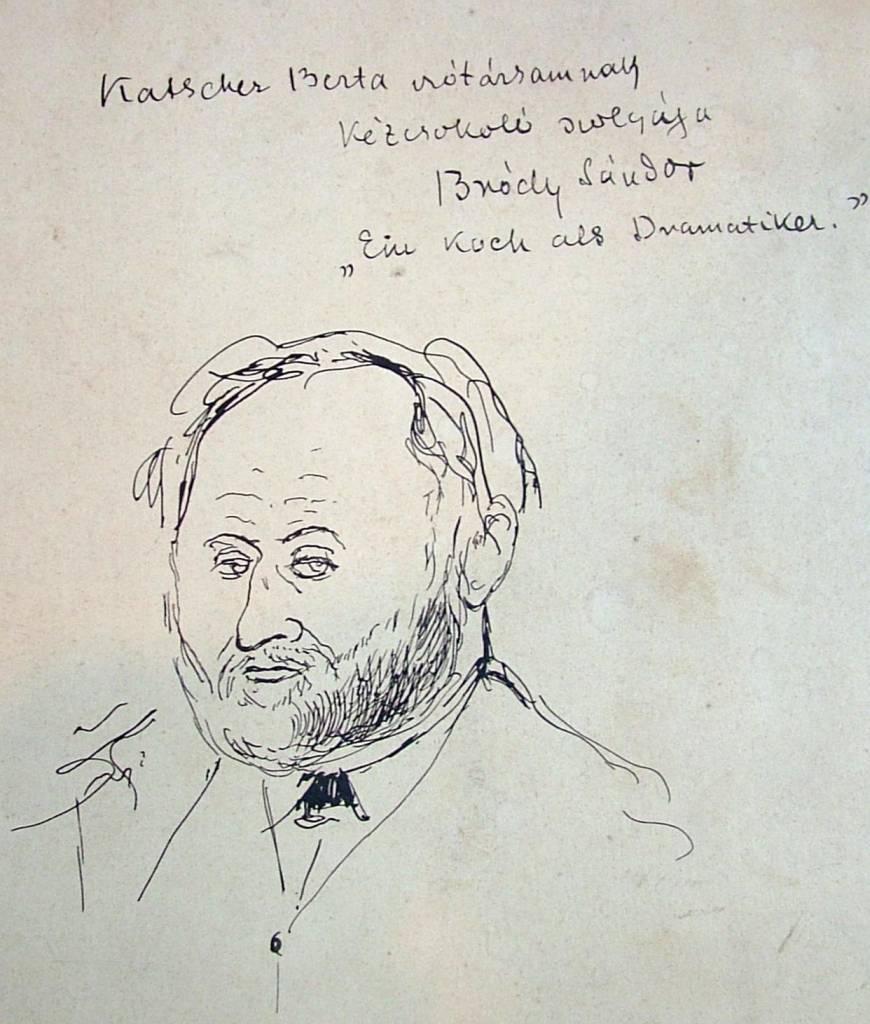 Katscher Berta irótársamnak
Kézcsokoló szolgája
Bródy Sándor
„Ein Koch als Dramatiker.”